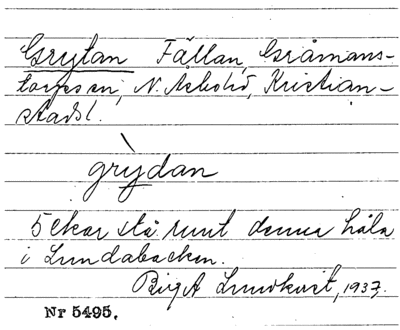 Grytan Fållan, Gråmans-
torpssn, N. Åsbohd, Kristian-
stadsl.
grỳdan
5 ekar stå runt denna håla
i Lundabacken.
Birgit Lundkvist, 1937.
Nr 5495.